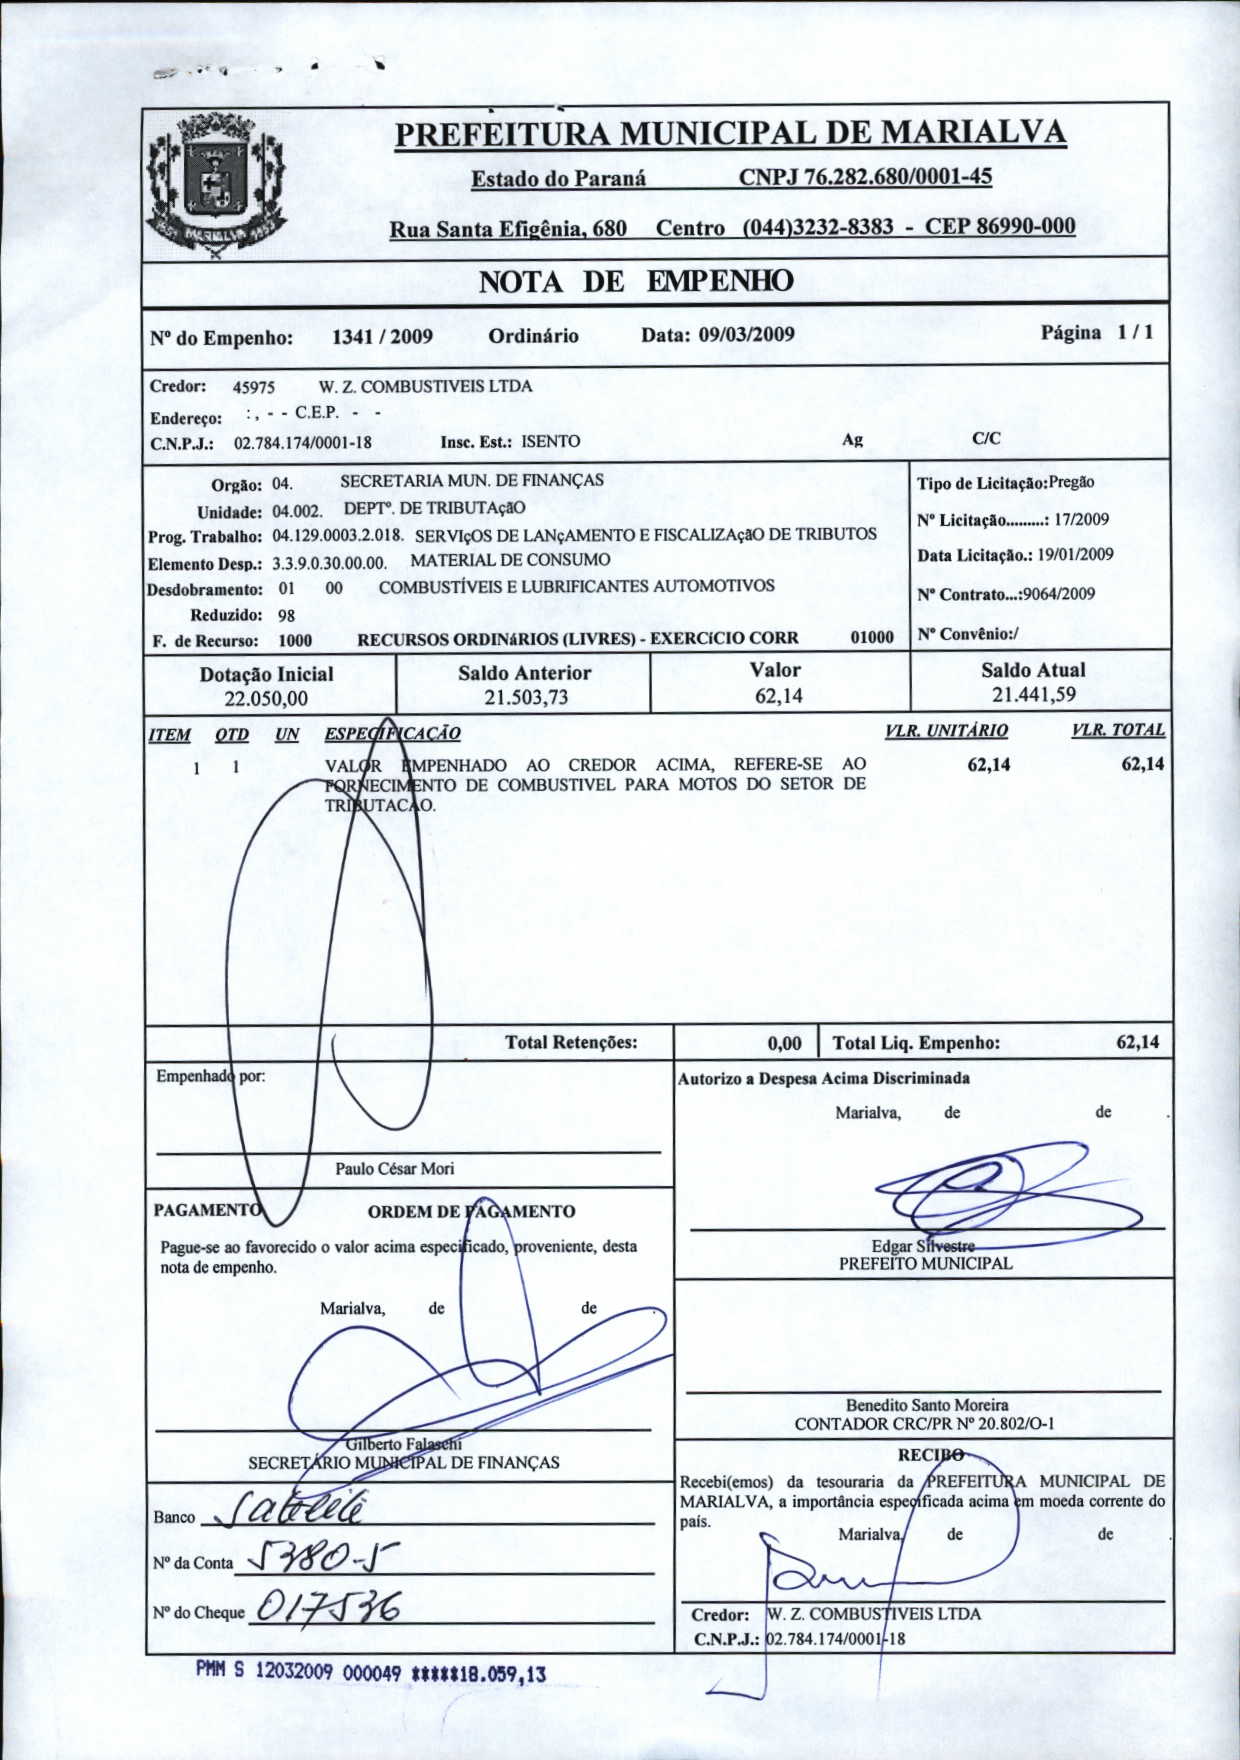 PREFEITURA MUNICIPAL DE MARIALVA
Estado do Paraná CNPJ 76.282.680/0001-45
Rua Santa Efigênia, 680 Centro (044)3232-8383 - CEP 86990-000
MARIALVA
NOTA DE EMPENHO
Nº do Empenho: 1341 / 2009 Ordinário Data: 09/03/2009 Página 1 / 1
Credor: 45975 W. Z. COMBUSTIVEIS LTDA
Endereço: : , - - C.E.P. - -
C.N.P.J.: 02.784.174/0001-18 Insc. Est.: ISENTO Ag C/C
Orgão: 04. SECRETARIA MUN. DE FINANÇAS
Unidade: 04.002. DEPTº. DE TRIBUTAçãO
Prog. Trabalho: 04.129.0003.2.018. SERVIçOS DE LANçAMENTO E FISCALIZAçãO DE TRIBUTOS
Elemento Desp.: 3.3.9.0.30.00.00. MATERIAL DE CONSUMO
Desdobramento: 01 00 COMBUSTÍVEIS E LUBRIFICANTES AUTOMOTIVOS
Reduzido: 98
F. de Recurso: 1000 RECURSOS ORDINáRIOS (LIVRES) - EXERCíCIO CORR 01000
Tipo de Licitação:Pregão
Nº Licitação.........: 17/2009
Data Licitação.: 19/01/2009
Nº Contrato...:9064/2009
Nº Convênio:/
Dotação Inicial Saldo Anterior Valor Saldo Atual
22.050,00 21.503,73 62,14 21.441,59
ITEM QTD UN ESPECIFICAÇÃO VLR. UNITÁRIO VLR. TOTAL
1 1 VALOR EMPENHADO AO CREDOR ACIMA, REFERE-SE AO 62,14 62,14
FORNECIMENTO DE COMBUSTIVEL PARA MOTOS DO SETOR DE
TRIBUTACAO.
Total Retenções: 0,00 Total Liq. Empenho: 62,14
Empenhado por:
Paulo César Mori
Autorizo a Despesa Acima Discriminada
Marialva, de de .
Edgar Silvestre
PREFEITO MUNICIPAL
PAGAMENTO ORDEM DE PAGAMENTO
Pague-se ao favorecido o valor acima especificado, proveniente, desta
nota de empenho.
Marialva, de de .
Gilberto Falaschi
SECRETÁRIO MUNICIPAL DE FINANÇAS
Benedito Santo Moreira
CONTADOR CRC/PR Nº 20.802/O-1
Banco
Nº da Conta 5380-5
Nº do Cheque 017536
RECIBO
Recebi(emos) da tesouraria da PREFEITURA MUNICIPAL DE
MARIALVA, a importância especificada acima em moeda corrente do
país.
Marialva, de de
Credor: W. Z. COMBUSTIVEIS LTDA
C.N.P.J.: 02.784.174/0001-18
PMM S 12032009 000049 *****18.059,13